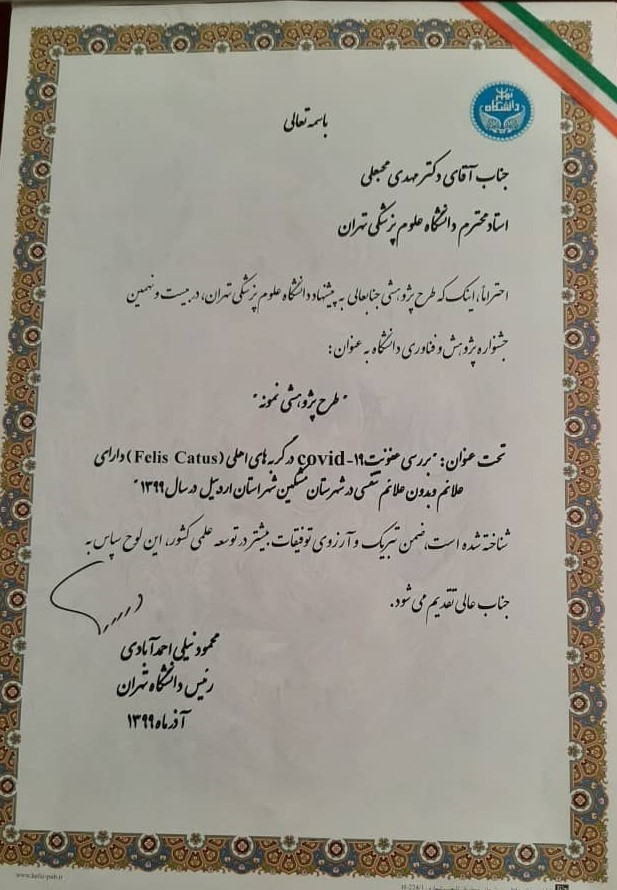 دانشگاه تهران
باسمه تعالی
جناب آقای دکتر مهدی محبعلی
استاد محترم دانشگاه علوم پزشکی تهران
احتراماً، اینک که طرح پژوهشی جنابعالی به پیشنهاد دانشگاه علوم پزشکی تهران، در بیست و نهمین
جشنواره پژوهش و فناوری دانشگاه به عنوان:
"طرح پژوهشی نمونه"
تحت عنوان: "بررسی عفونت covid-۱۹ در گربه های اهلی (Felis Catus) دارای
علائم و بدون علائم تنفسی در شهرستان مشگین شهر استان اردبیل در سال ۱۳۹۹"
شناخته شده است، ضمن تبریک و آرزوی توفیقات بیشتر در توسعه علمی کشور، این لوح سپاس به
جناب عالی تقدیم می شود.
محمود نیلی احمدآبادی
رئیس دانشگاه تهران
آذر ماه ۱۳۹۹